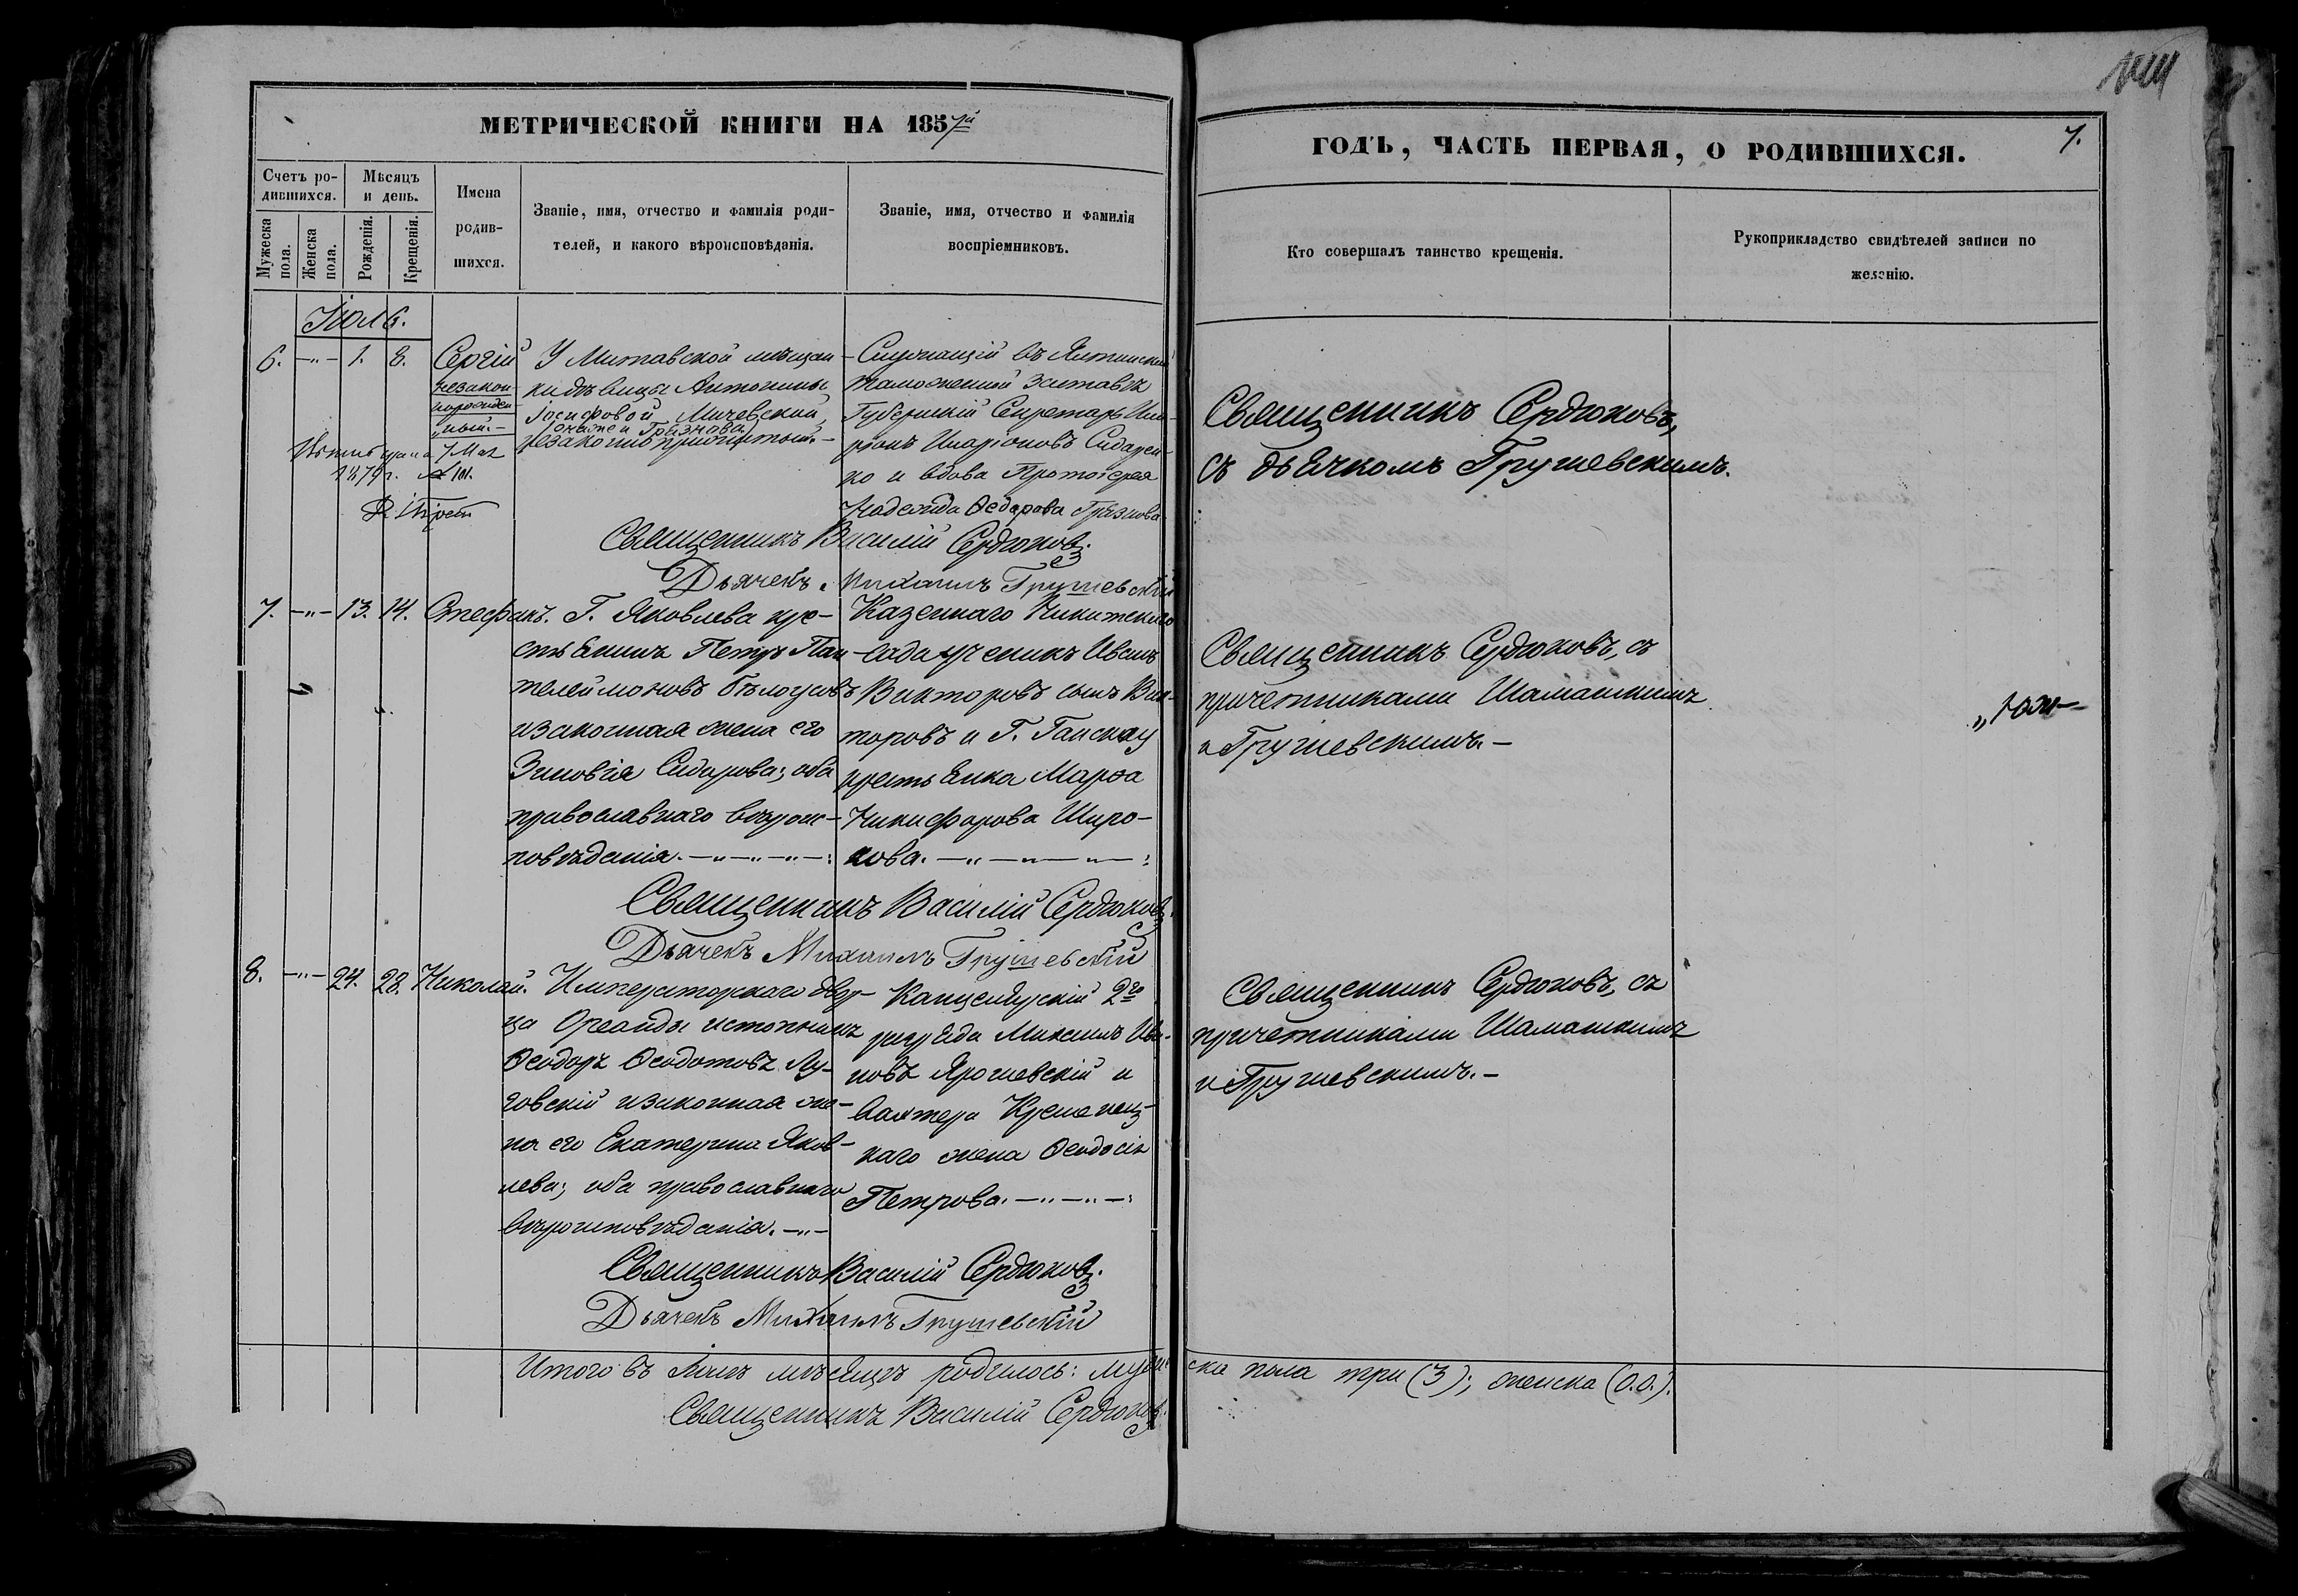 МЕТРИЧЕСКОЙ КНИГИ НА 1857й
ГОДЪ, ЧАСТЬ ПЕРВАЯ, О РОДИВШИХСЯ.
7.
Счетъ ро-
дившихся.
Мѣсяцъ
и день.
Мужеска
пола.
Женска
пола.
Рожденія.
Крещенія.
Имена
родив-
шихся.
Званіе, имя, отчество и фамилія роди-
телей, и какого вѣроисповѣданія.
Званіе, имя, отчество и фамилія
воспріемниковъ.
Кто совершалъ таинство крещенія.
Рукоприкладство свидѣтелей записи по
желанію.
Іюль.
6. —"— 1. 8. Сергій
незакон
норожден
„ный.—
У Митавской мѣщан
ки дѣвицы Антонины
Іосифовой Мичевской,
(она же и Грязнова)
незаконно прижитый.—
Служащій въ Ялтинской
таможенной заставѣ
Губернскій Секретарь Ила-
ріонъ Иларіоновъ Сидорен-
ко и вдова Протоіерея
Надежда Ѳедорова Грязнова
Священникъ Сердюковъ,
съ дьячкомъ Грушевскимъ.
7 Мая
1879 г. № 101.
Священникъ Василій Сердюковъ.
Дьячекъ Михаилъ Грушевскій
7. —"— 13. 14. Стефанъ.
Г. Яковлева кре-
стьянинъ Петръ Пан-
телеймоновъ Бѣлоусовъ
и законная жена его
Зиновія Сидорова; оба
православнаго вѣроис-
повѣданія. —"—"—"—:
Казеннаго Никитскаго
сада ученикъ Иванъ
Викторовъ сынъ Вик-
торовъ и Г. Ганскау
крестьянка Марѳа
Никифорова Широ-
кова. —"—"—"—:
Священникъ Сердюковъ, съ
причетниками Шамашкинъ
и Грушевскимъ.—
Священникъ Василій Сердюковъ.
Дьячекъ Михаилъ Грушевскій
8. —"— 24. 28. Николай.
Императорскаго двор-
ца Ореанды истопникъ
Ѳеодоръ Ѳеодотовъ Лу-
говскій и законная же-
на его Екатерина Яков-
лева; оба православнаго
вѣроисповѣданія. —"—
Канцелярскій 2го
разряда Максимъ Ива-
новъ Ярошевскій и
вахтера Кременец-
каго жена Ѳеодосія
Петрова. —"—"—:
Священникъ Сердюковъ, съ
причетниками Шамашкинъ
и Грушевскимъ.—
Священникъ Василій Сердюковъ.
Дьячекъ Михаилъ Грушевскій
Итого въ Іюлѣ мѣсяцѣ родилось: мужеска пола три (3); женска (0.0.).
Священникъ Василій Сердюковъ.